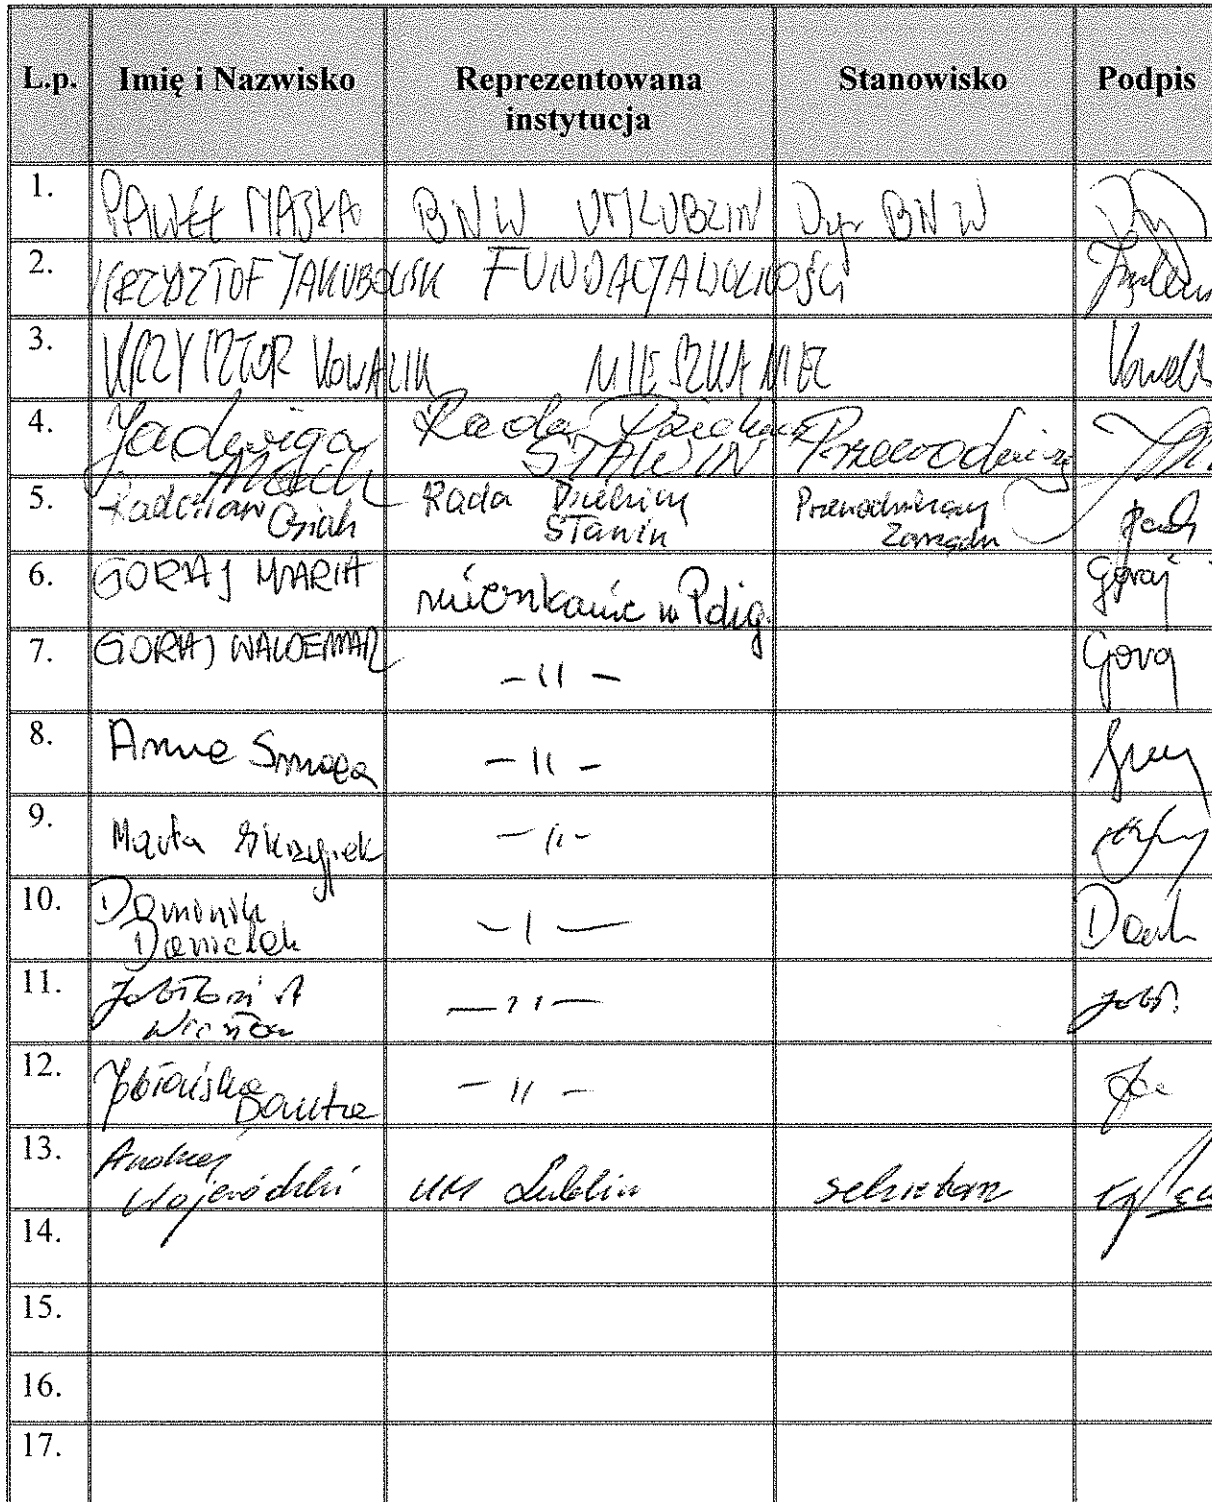 L.p. Imię i Nazwisko Reprezentowana instytucja Stanowisko Podpis
1. PAWEŁ MAJKA BNW UM LUBLIN Dyr BNW
2. KRZYSZTOF JAKUBOWSKI FUNDACJA WOLNOŚCI
3. KRZYSZTOF KOWALIK MIESZKANIEC
4. Jadwiga Mach Rada Dzielnicy SŁAWIN Przewodnicząca
5. Radosław Osiak Rada Dzielnicy Sławin Przewodniczący Zarządu
6. GORAJ MARIA Goraj
7. GORAJ WALDEMAR -II- Goraj
8. Anna Smaga -II-
9. Marta Skrzypek -II-
10. Dominik Danielak -I-
11. Wiesław -II- Jabł.
12. Jabłońska Danuta -II-
13. Andrzej Wojewódzki UM Lublin sekretarz
14.
15.
16.
17.